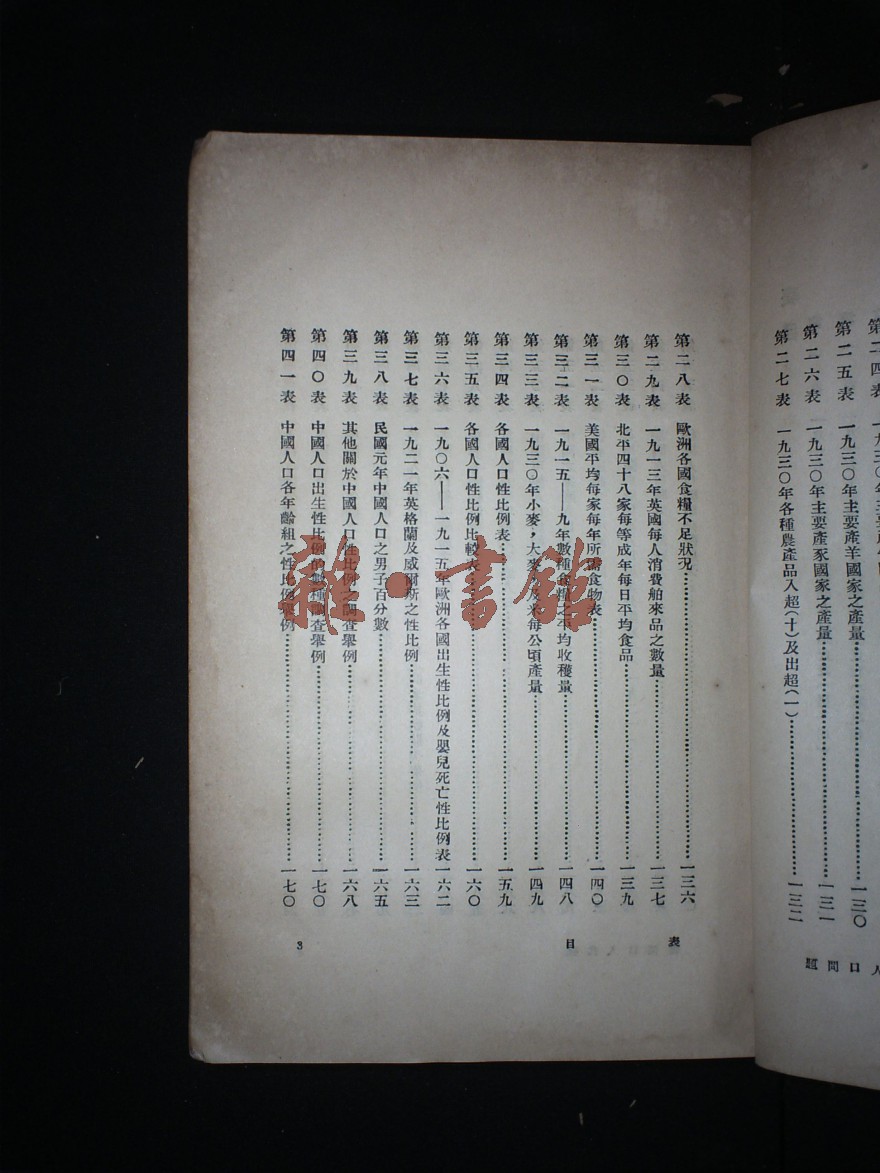 一九三〇年主要產羊國家之產量……一三〇
第二五表
第二六表 一九三〇年主要產豕國家之產量……一三一
第二七表 一九三〇年各種農產品入超(十)及出超(一)……一三二
人口問題
第二八表 歐洲各國食糧不足狀況……一三六
第二九表 一九一三年英國每人消費舶來品之數量……一三七
第三〇表 北平四十八家每等成年每日平均食品……一三九
第三一表 美國平均每家每年所需食物表……一四〇
第三二表 一九一五——九年數種食糧之平均收穫量……一四八
第三三表 一九三〇年小麥,大麥,及米每公頃產量……一四九
第三四表 各國人口性比例表……一五九
第三五表 各國人口性比例比較表……一六〇
第三六表 一九〇六——一九一五年歐洲各國出生性比例及嬰兒死亡性比例表 一六二
第三七表 一九二一年英格蘭及威爾斯之性比例……一六三
第三八表 民國元年中國人口之男子百分數……一六五
第三九表 其他關於中國人口性比例之調查舉例……一六八
第四〇表 中國人口出生性比例的數種調查舉例……一七〇
第四一表 中國人口各年齡組之性比例舉例……一七〇
表目
3
雜·書館